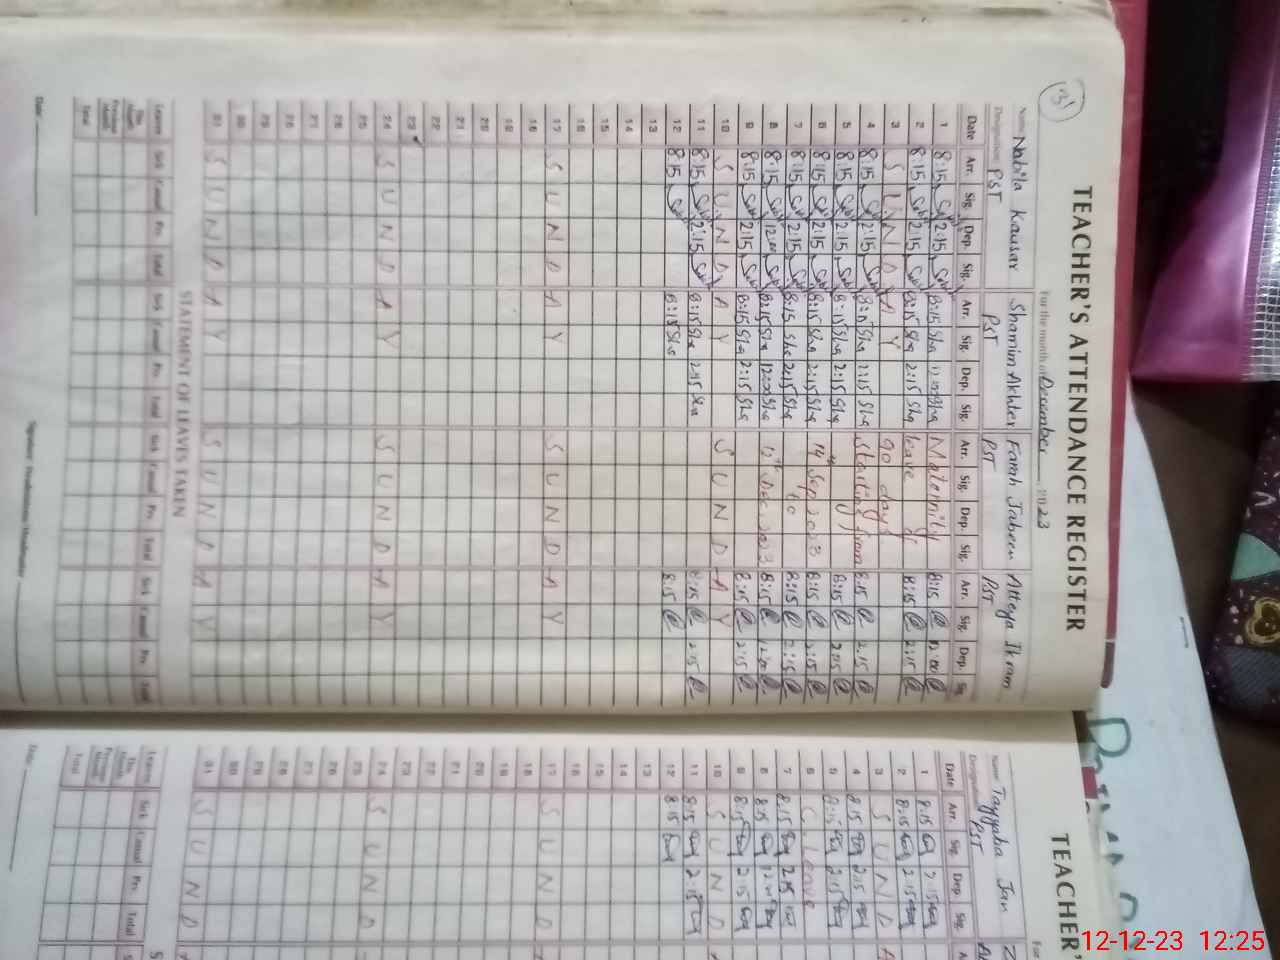 31
TEACHER'S ATTENDANCE REGISTER
For the month of December, 2023
Name Nabila Kausar Shamim Akhter Farah Jabeen Atteya Ikram
Designation PST PST PST PST
Date Arr. Sig. Dep. Sig. Arr. Sig. Dep. Sig. Arr. Sig. Dep. Sig. Arr. Sig. Dep. Sig.
1 8:15 2:15 8:15 Sha 12:00 Sha Maternity 8:15 12:00
2 8:15 2:15 8:15 Sha 2:15 Sha leave of 8:15 2:15
3 S U N D A Y 90 days
4 8:15 2:15 8:15 Sha 2:15 Sha Starting from 8:15 2:15
5 8:15 2:15 8:15 Sha 2:15 Sha 8:15 2:15
6 8:15 2:15 8:15 Sha 2:15 Sha 14 Sep 2023 8:15 2:15
7 8:15 2:15 8:15 Sha 2:15 Sha to 8:15 2:15
8 8:15 12:00 8:15 Sha 12:00 Sha 12th Dec 2023 8:15 12:00
9 8:15 2:15 8:15 Sha 2:15 Sha 8:15 2:15
10 S U N D A Y S U N D A Y
11 8:15 2:15 8:15 Sha 2:15 Sha 8:15 2:15
12 8:15 8:15 Sha 8:15
13
14
15
16
17 S U N D A Y S U N D A Y
18
19
20
21
22
23
24 S U N D A Y S U N D A Y
25
26
27
28
29
30
31 S U N D A Y S U N D A Y
STATEMENT OF LEAVES TAKEN
Leaves Sick Casual Prv. Total Sick Casual Prv. Total Sick Casual Prv. Total Sick Casual Prv. Total
This Month
Previous Month
Total
Date:
Signature Headmistress/Headmaster
TEACHER'
For
Name Tayyaba Jan Z
Designation PST
Date Arr. Sig. Dep. Sig. A
1 8:15 2:15
2 8:15 2:15
3 S U N D A
4 8:15 2:15
5 8:15 2:15
6 C. Leave
7 8:15 2:15
8 8:15 12:00
9 8:15 2:15
10 S U N D
11 8:15 2:15
12 8:15
13
14
15
16
17 S U N D
18
19
20
21
22
23
24 S U N D
25
26
27
28
29
30
31 S U N D
Leaves Sick Casual Prv. Total S
This Month
Previous Month
Total
Date:
12-12-23 12:25